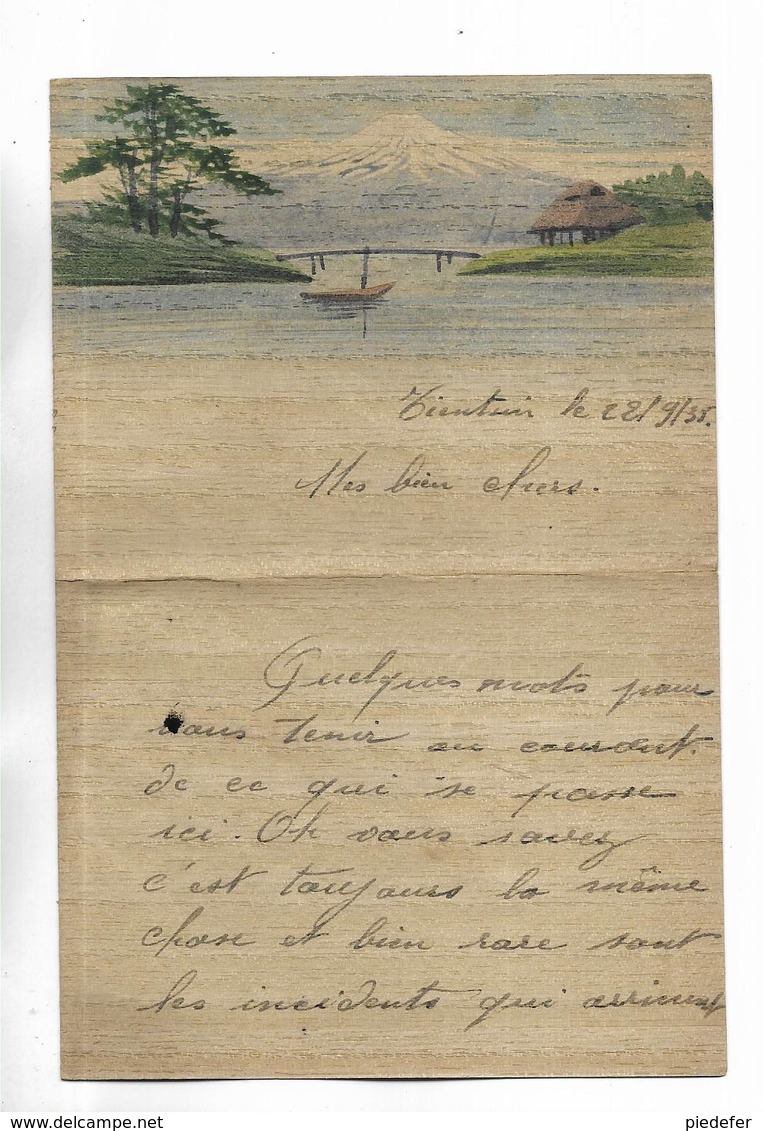 Tientsin le 22/9/35.
Mes bien chers.
Quelques mots pour
vous tenir au courant.
de ce qui se passe
ici. Oh vous savez
c'est toujours la même
chose et bien rare sont
les incidents qui arrivent
piedefer